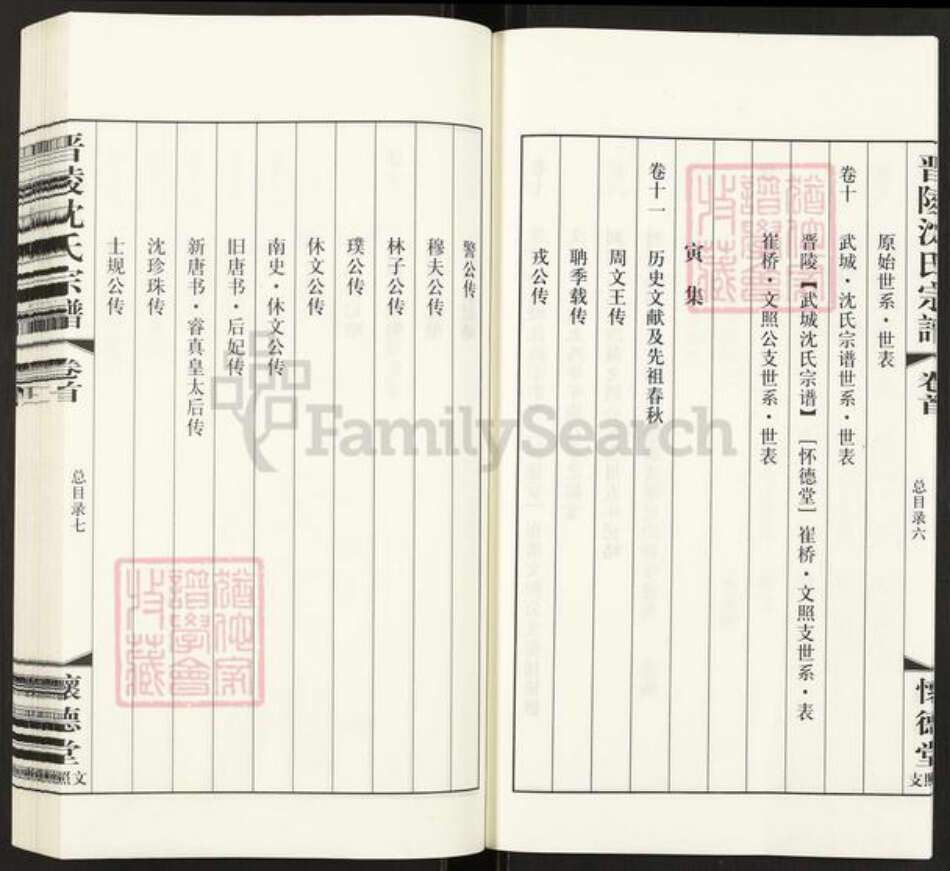 晋陵沈氏宗谱
卷首
总目录六
怀德堂
文照支
原始世系·世表
卷十 武城·沈氏宗谱世系·世表
晋陵【武城沈氏宗谱】 [怀德堂] 崔桥·文照支世系·表
崔桥·文照公支世系·世表
寅集
卷十一 历史文献及先祖春秋
周文王传
聃季载传
戎公传
警公传
穆夫公传
林子公传
璞公传
休文公传
南史·休文公传
旧唐书·后妃传
新唐书·睿真皇太后传
沈珍珠传
士规公传
晋陵沈氏宗谱
卷首
总目录七
怀德堂
文照
FamilySearch